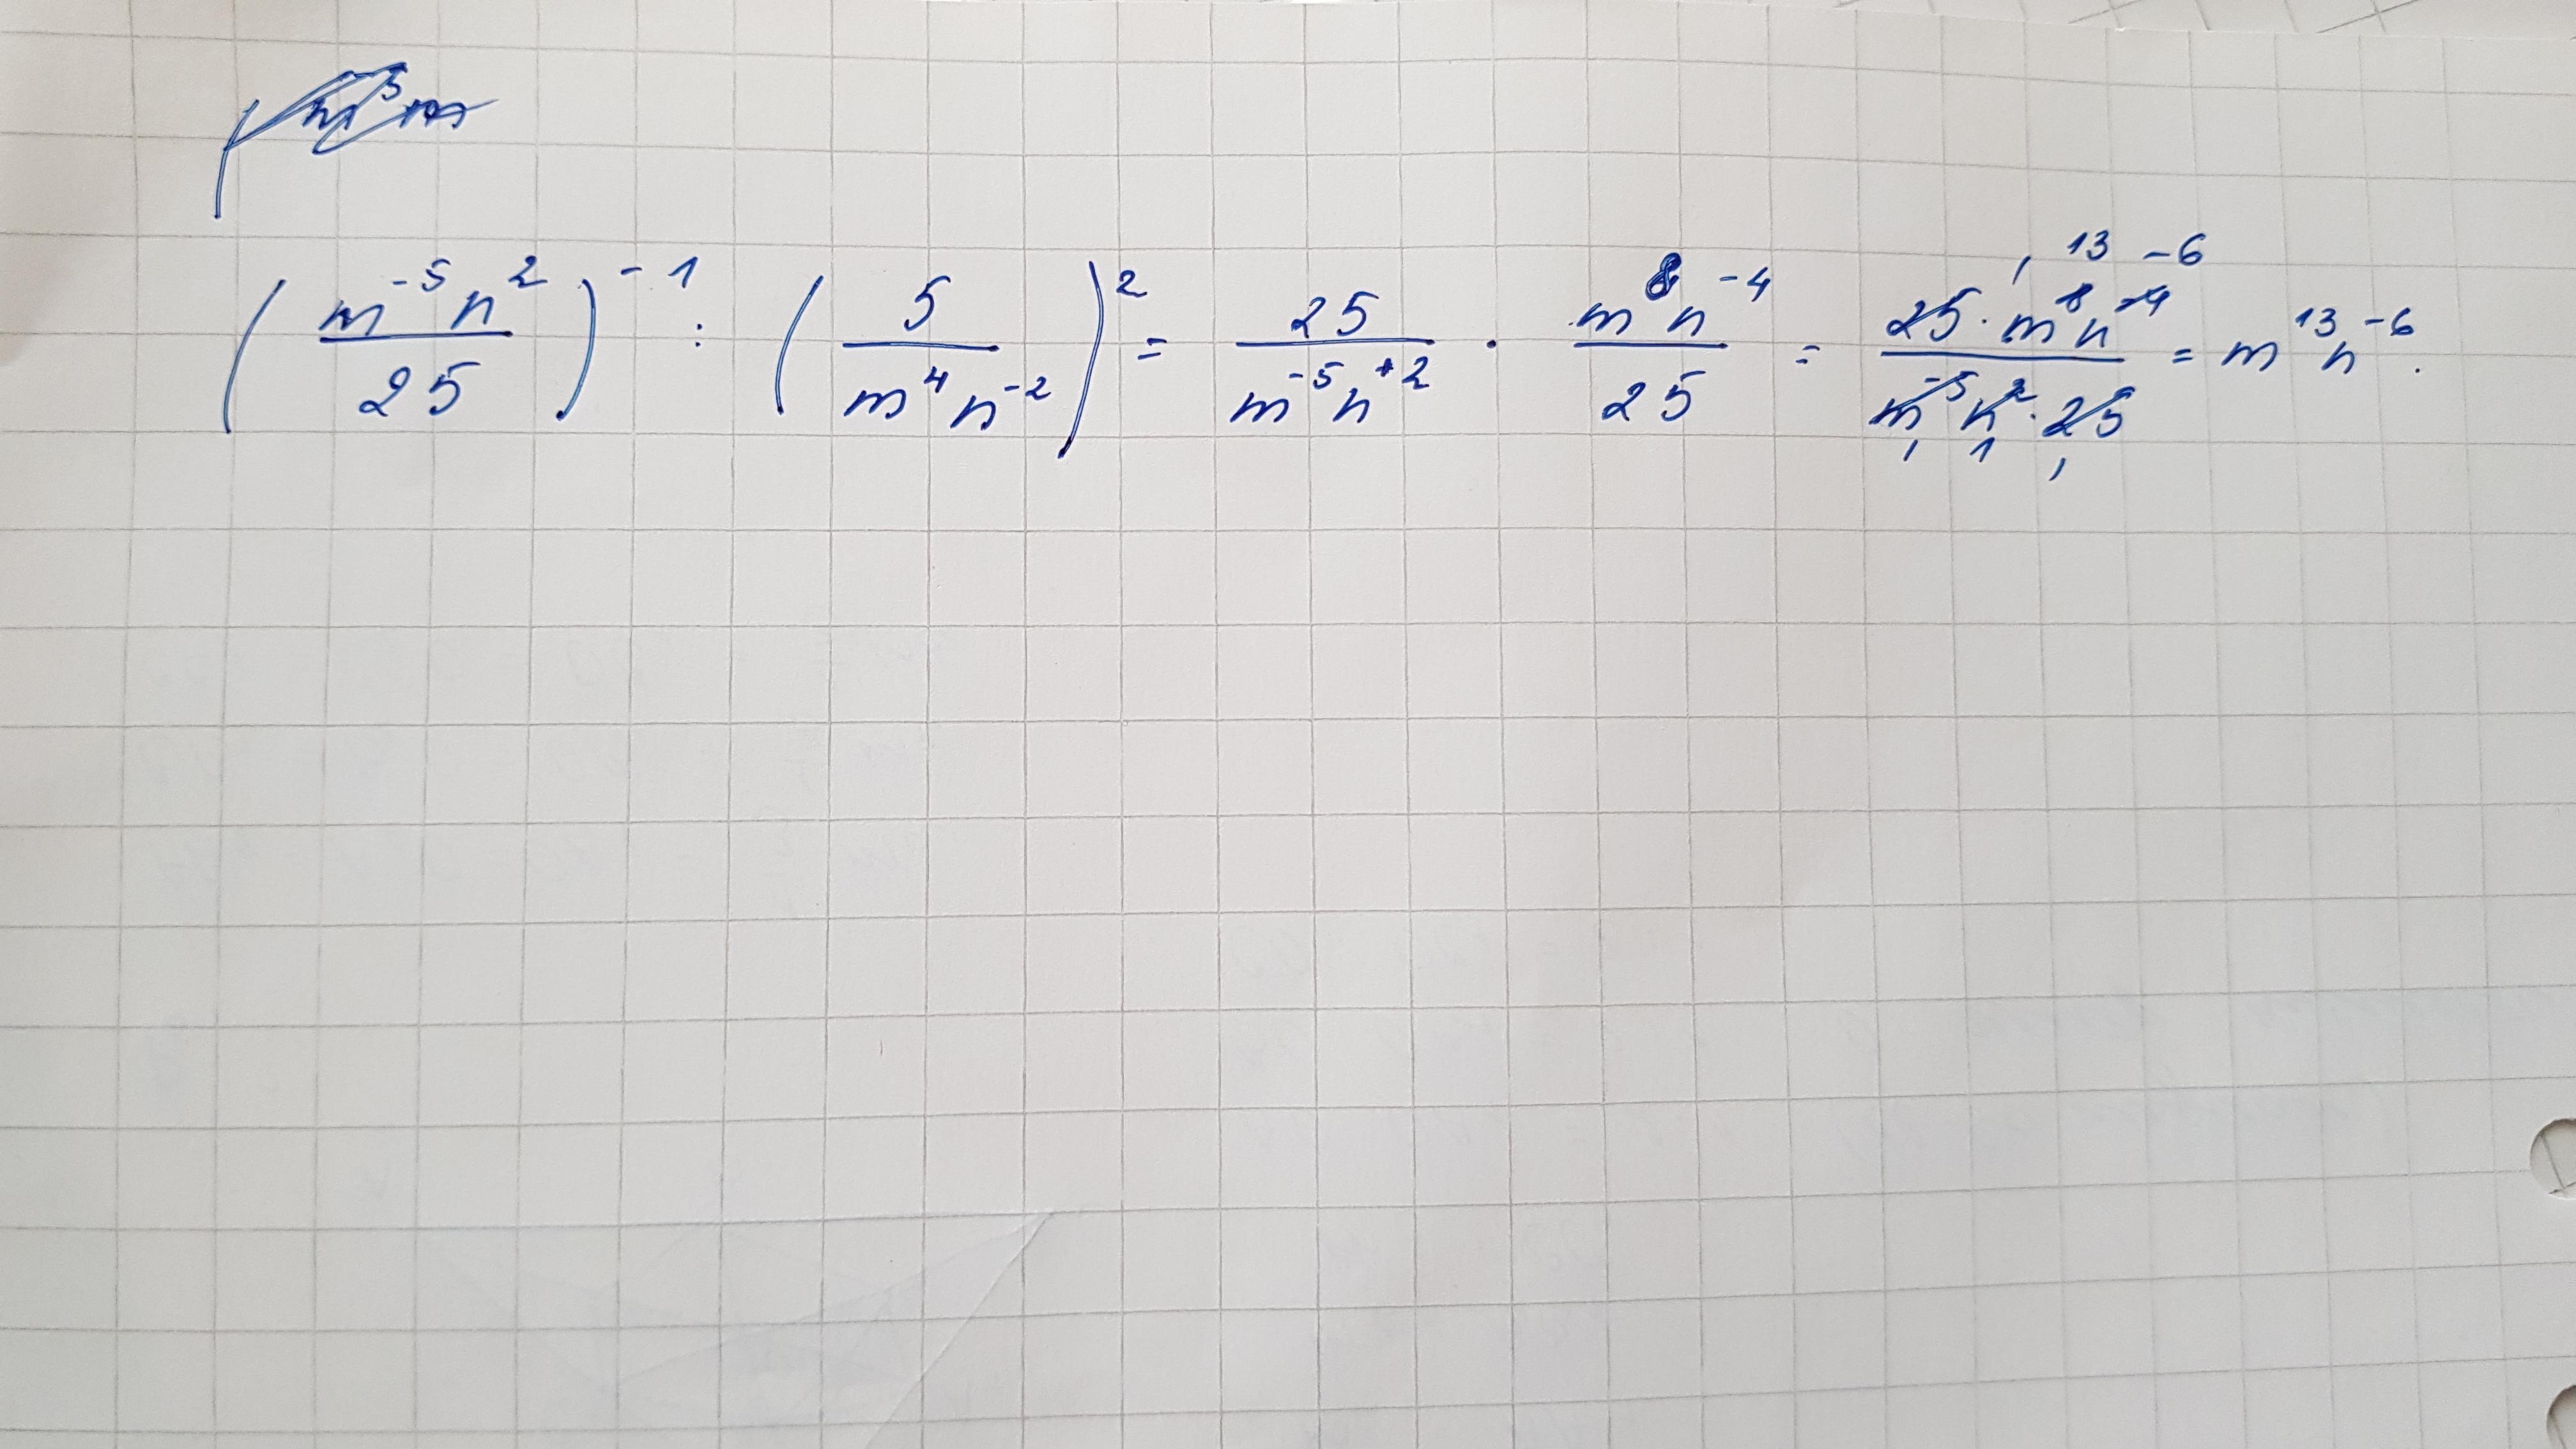 (m⁻⁵n²/25)⁻¹ : (5/m⁴n⁻²)² = 25/m⁻⁵n⁺² · m⁸n⁻⁴/25 = 25·m⁸n⁻⁴/m⁻⁵n²·25 = m¹³n⁻⁶.